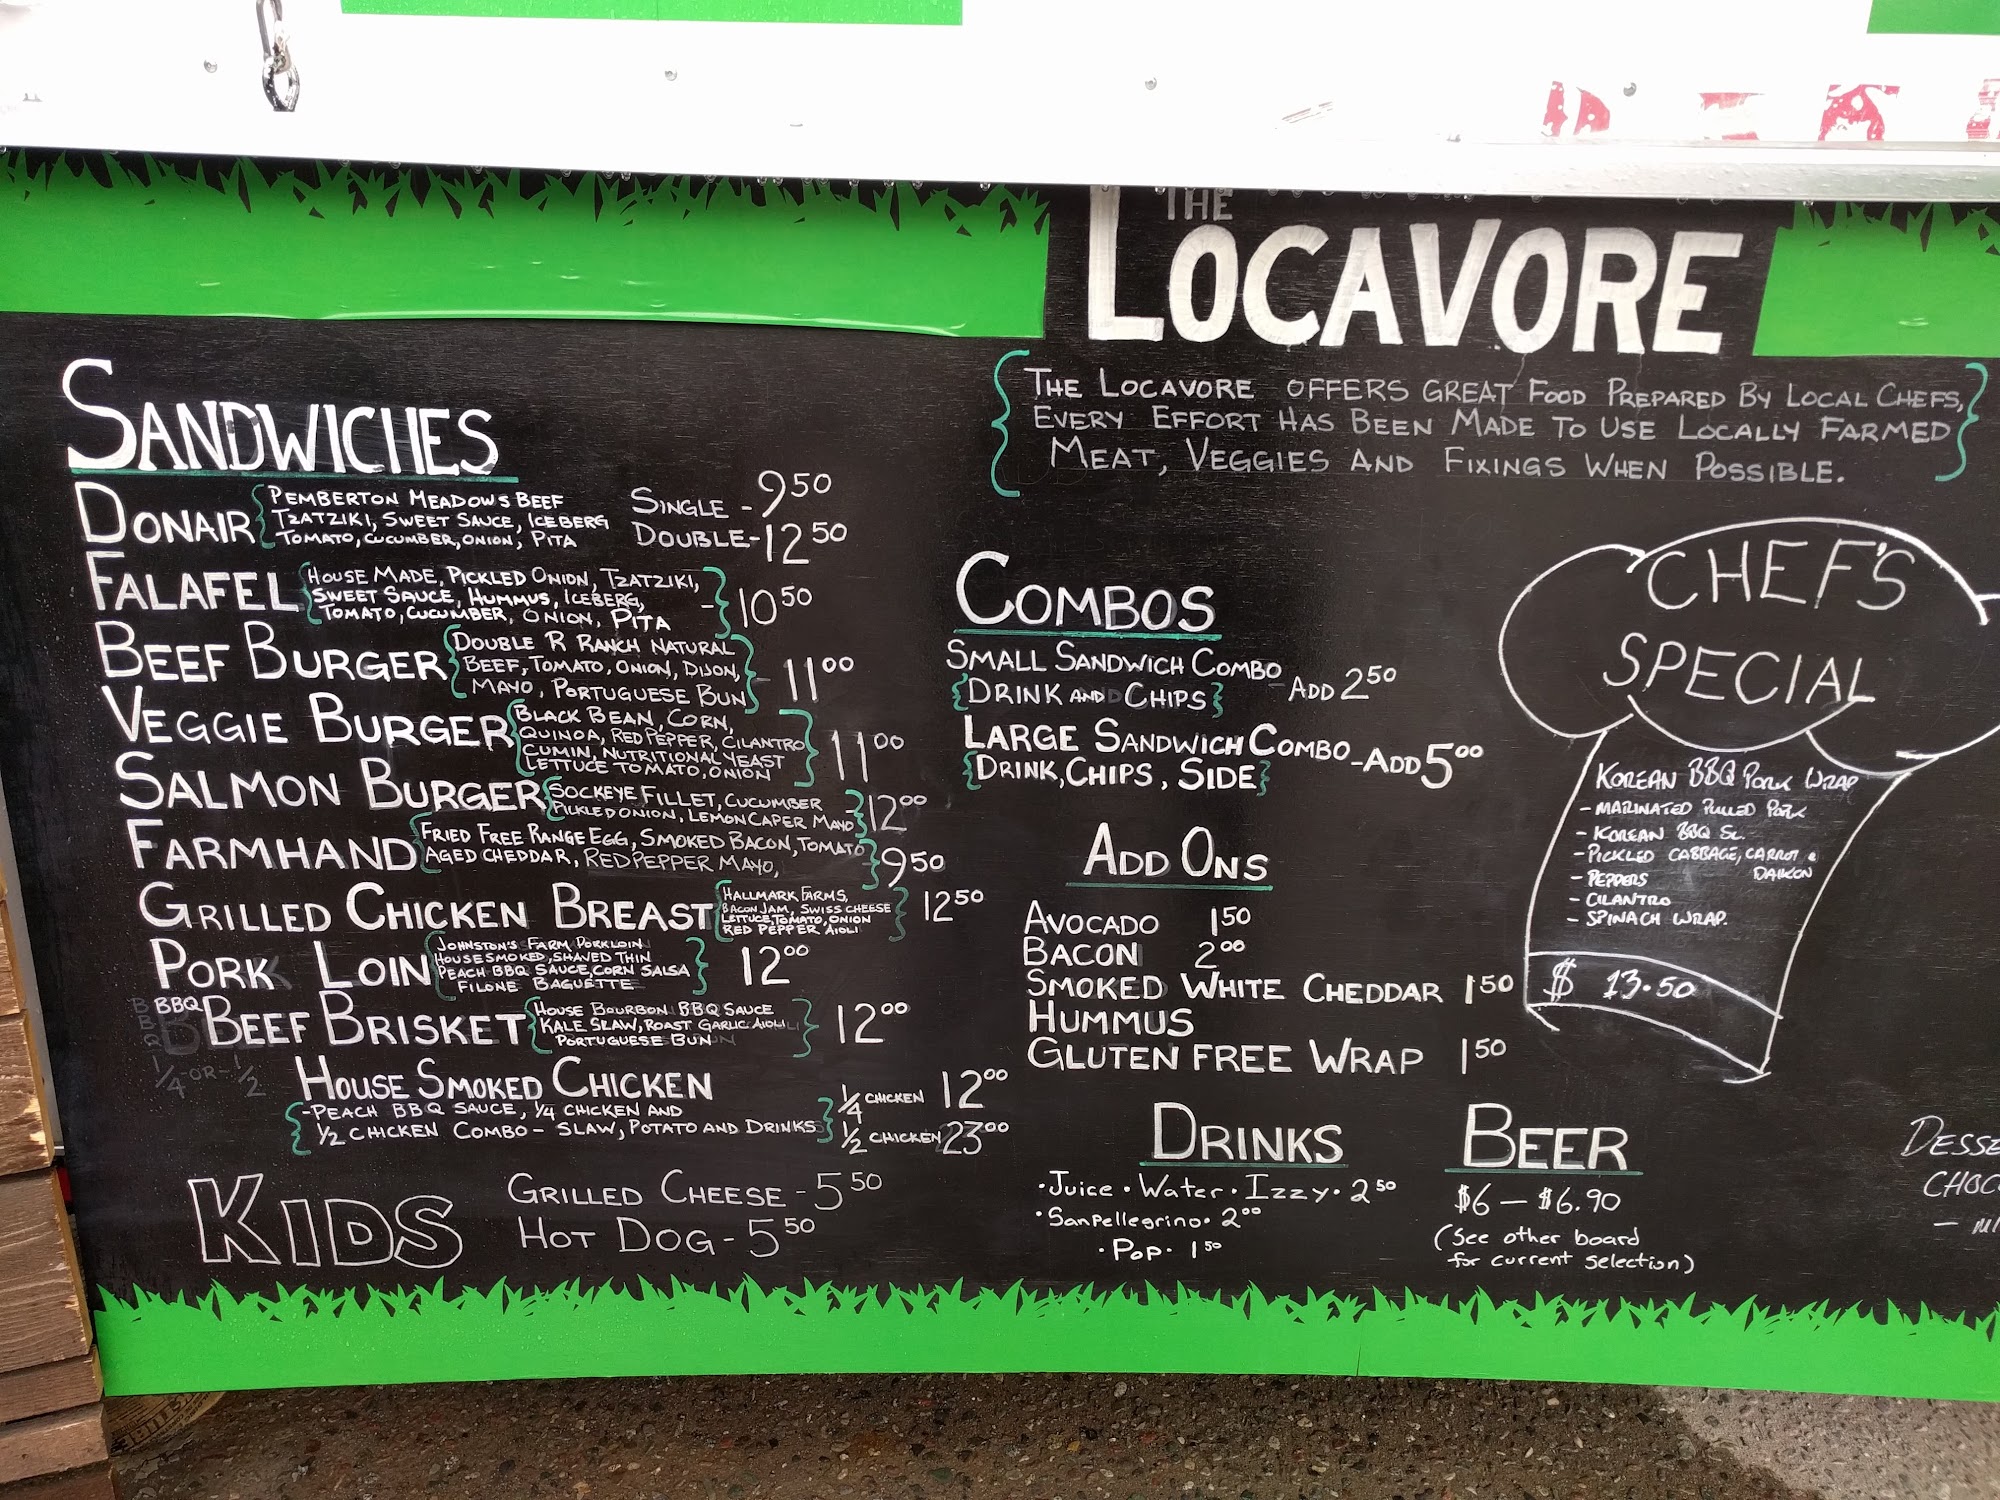 THE
LOCAVORE
THE LOCAVORE OFFERS GREAT FOOD PREPARED BY LOCAL CHEFS,
EVERY EFFORT HAS BEEN MADE TO USE LOCALLY FARMED
MEAT, VEGGIES AND FIXINGS WHEN POSSIBLE.
SANDWICHES
DONAIR PEMBERTON MEADOWS BEEF
TZATZIKI, SWEET SAUCE, ICEBERG
TOMATO, CUCUMBER, ONION, PITA
SINGLE - 9 50
DOUBLE - 12 50
FALAFEL HOUSE MADE, PICKLED ONION, TZATZIKI,
SWEET SAUCE, HUMMUS, ICEBERG,
TOMATO, CUCUMBER, ONION, PITA
- 10 50
BEEF BURGER DOUBLE R RANCH NATURAL
BEEF, TOMATO, ONION, DIJON,
MAYO, PORTUGUESE BUN
- 11 00
VEGGIE BURGER BLACK BEAN, CORN,
QUINOA, RED PEPPER, CILANTRO
CUMIN, NUTRITIONAL YEAST
LETTUCE TOMATO, ONION
11 00
SALMON BURGER SOCKEYE FILLET, CUCUMBER
PICKLED ONION, LEMON CAPER MAYO
12 00
FARMHAND FRIED FREE RANGE EGG, SMOKED BACON, TOMATO
AGED CHEDDAR, RED PEPPER MAYO,
9 50
GRILLED CHICKEN BREAST HALLMARK FARMS,
BACON JAM, SWISS CHEESE
LETTUCE, TOMATO, ONION
RED PEPPER AIOLI
12 50
PORK LOIN JOHNSTON'S FARM PORKLOIN
HOUSE SMOKED, SHAVED THIN
PEACH BBQ SAUCE, CORN SALSA
FILONE BAGUETTE
12 00
BBQ BEEF BRISKET HOUSE BOURBON BBQ SAUCE
KALE SLAW, ROAST GARLIC AIOLI
PORTUGUESE BUN
12 00
1/4 -OR- 1/2
HOUSE SMOKED CHICKEN
-PEACH BBQ SAUCE, 1/4 CHICKEN AND
1/2 CHICKEN COMBO - SLAW, POTATO AND DRINKS
1/4 CHICKEN 12 00
1/2 CHICKEN 23 00
KIDS
GRILLED CHEESE - 5 50
HOT DOG - 5 50
COMBOS
SMALL SANDWICH COMBO
DRINK AND CHIPS
- ADD 2 50
LARGE SANDWICH COMBO
DRINK, CHIPS, SIDE
- ADD 5 00
ADD ONS
AVOCADO 1 50
BACON 2 00
SMOKED WHITE CHEDDAR 1 50
HUMMUS
GLUTEN FREE WRAP 1 50
DRINKS
• Juice • Water • Izzy • 2 50
• Sanpellegrino • 2 00
• Pop • 1 50
BEER
$6 — $6.90
(See other board
for current selection)
CHEF'S
SPECIAL
KOREAN BBQ PORK WRAP
- MARINATED PULLED PORK
- KOREAN BBQ SC.
- PICKLED CABBAGE, CARROT &
DAIKON
- PEPPERS
- CILANTRO
- SPINACH WRAP.
$ 13.50
DESSE
CHOC